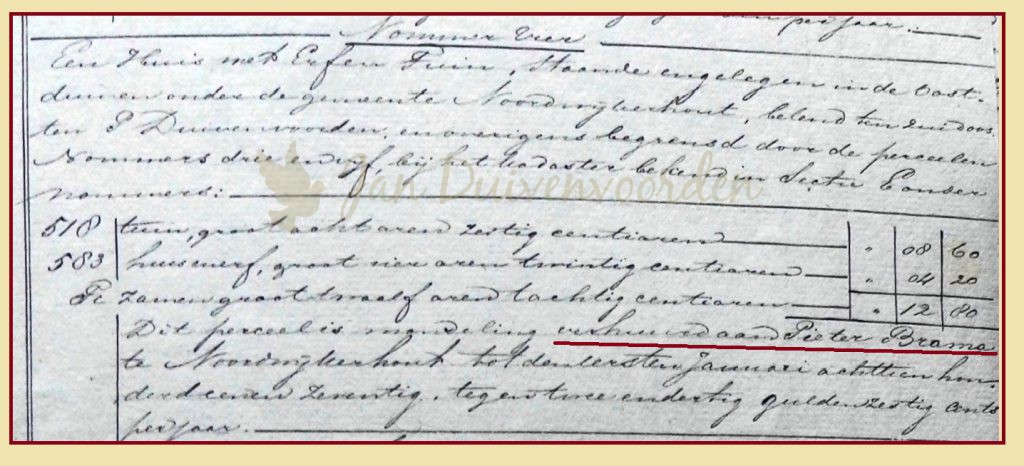 per jaar.
Nommer Vier
Een Huis met Erf en Tuin, staande en gelegen in de Oost-
duinen onder de gemeente Noordwijkerhout, belend ten zuidoos-
ten P Duivenvoorden, en overigens begrensd door de perceelen
Nommers drie en vijf, bij het kadaster bekend in Sectie E onder
nommers:
Jan Duivenvoorden
518 tuin, groot acht aren zestig centiaren " 08 60
583 huis en erf, groot vier aren twintig centiaren " 04 20
Te zamen groot twaalf aren tachtig centiaren " 12 80
Dit perceel is mondeling verhuurd aan Pieter Brama
te Noordwijkerhout tot den eersten Januari achttien hon-
derd een en zeventig, tegen twee en dertig gulden zestig cents
per jaar.